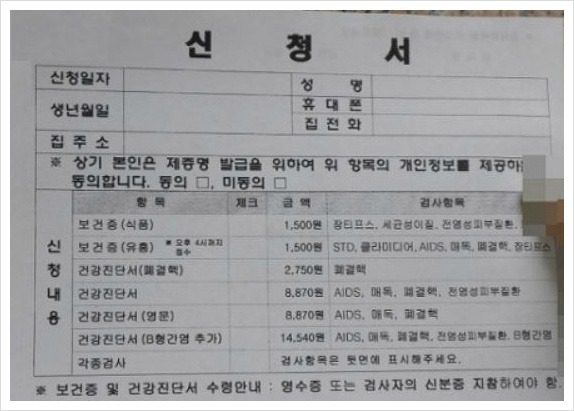 신 청 서
신청일자 성 명
생년월일 휴 대 폰
집 전 화
집 주 소
※ 상기 본인은 제증명 발급을 위하여 위 항목의 개인정보를 제공하는
동의합니다. 동의 □, 미동의 □
신청내용
항 목 체크 금 액 검사항목
보건증(식품) 1,500원 장티프스, 세균성이질, 전염성피부질환,
보건증(유흥) ※ 오후 4시까지 접수 1,500원 STD, 클라미디어, AIDS, 매독, 폐결핵, 장티프스
건강진단서(폐결핵) 2,750원 폐결핵
건강진단서 8,870원 AIDS, 매독, 폐결핵, 전염성피부질환
건강진단서(영문) 8,870원 AIDS, 매독, 폐결핵
건강진단서(B형간염 추가) 14,540원 AIDS, 매독, 폐결핵, 전염성피부질환, B형간염
각종검사 검사항목은 뒷면에 표시해주세요.
※ 보건증 및 건강진단서 수령안내 : 영수증 또는 검사자의 신분증 지참하여야 함.